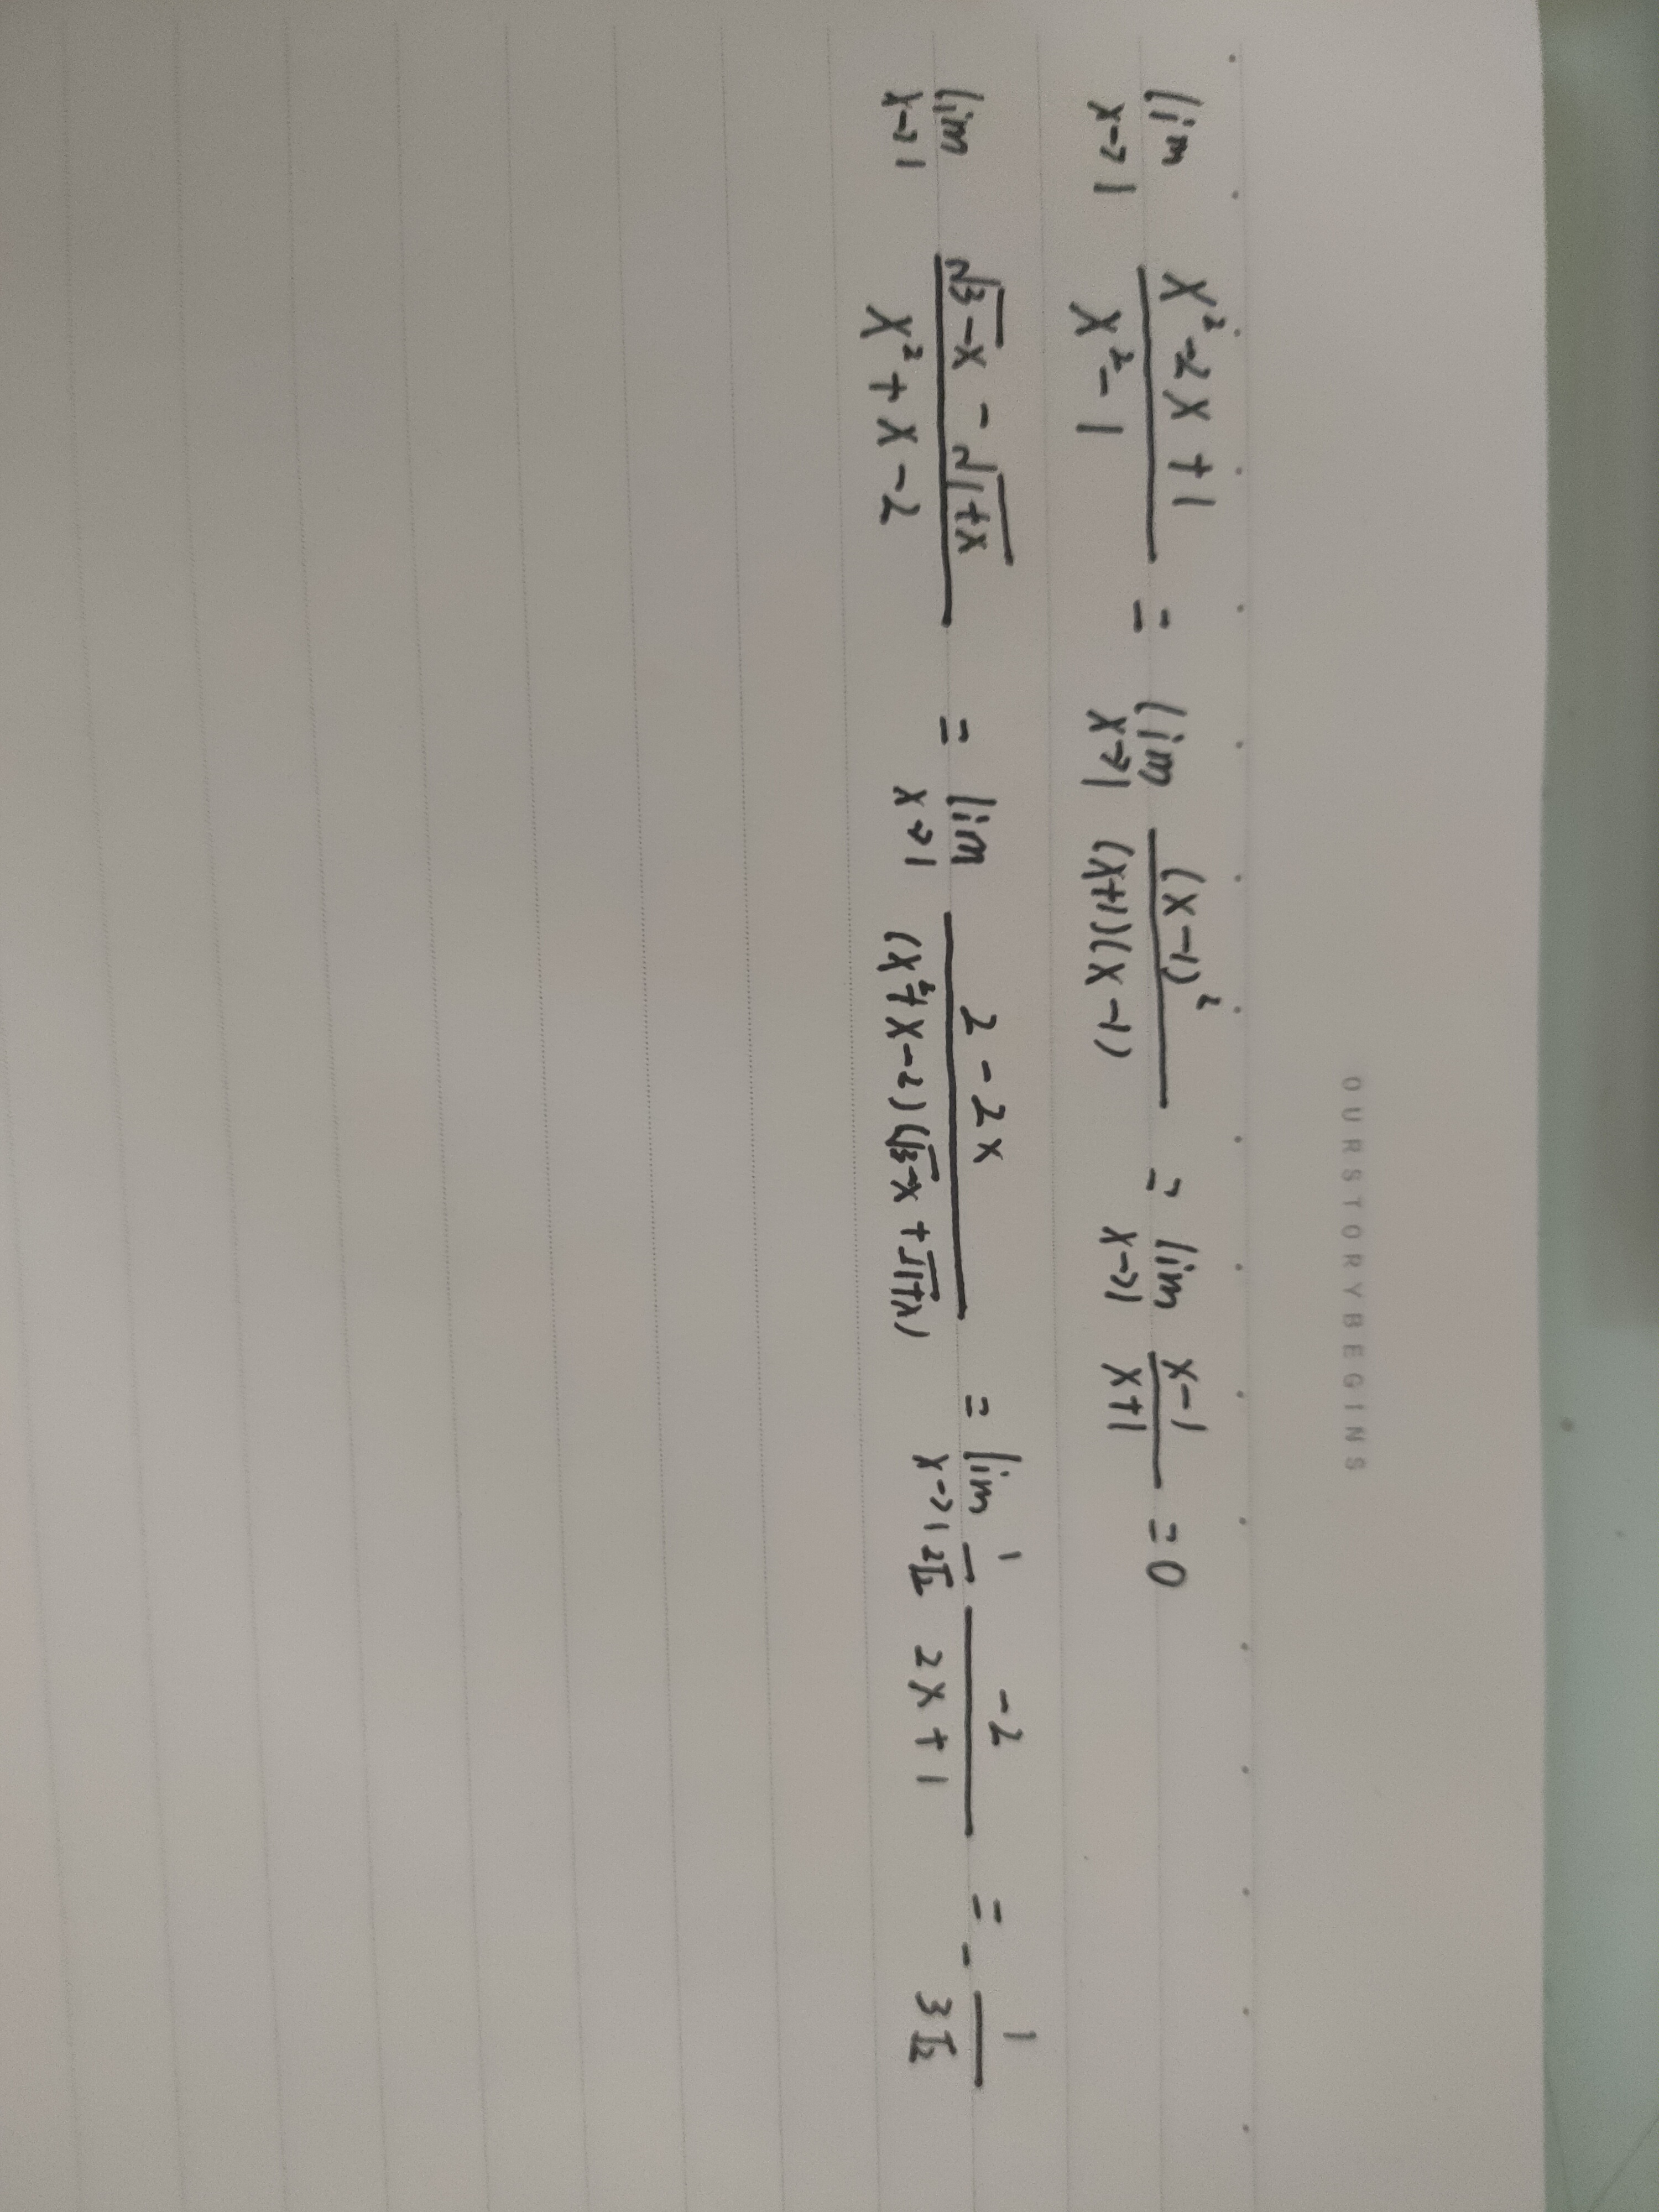 OURSTORYBEGINS
lim x→1 (x²-2x+1)/(x²-1) = lim x→1 (x-1)²/((x+1)(x-1)) = lim x→1 (x-1)/(x+1) = 0
lim x→1 (√(3-x) - √(1+x))/(x²+x-2) = lim x→1 (2-2x)/((x²+x-2)(√(3-x)+√(1+x))) = lim x→1 1/(2√2) (-2)/(2x+1) = -1/(3√2)